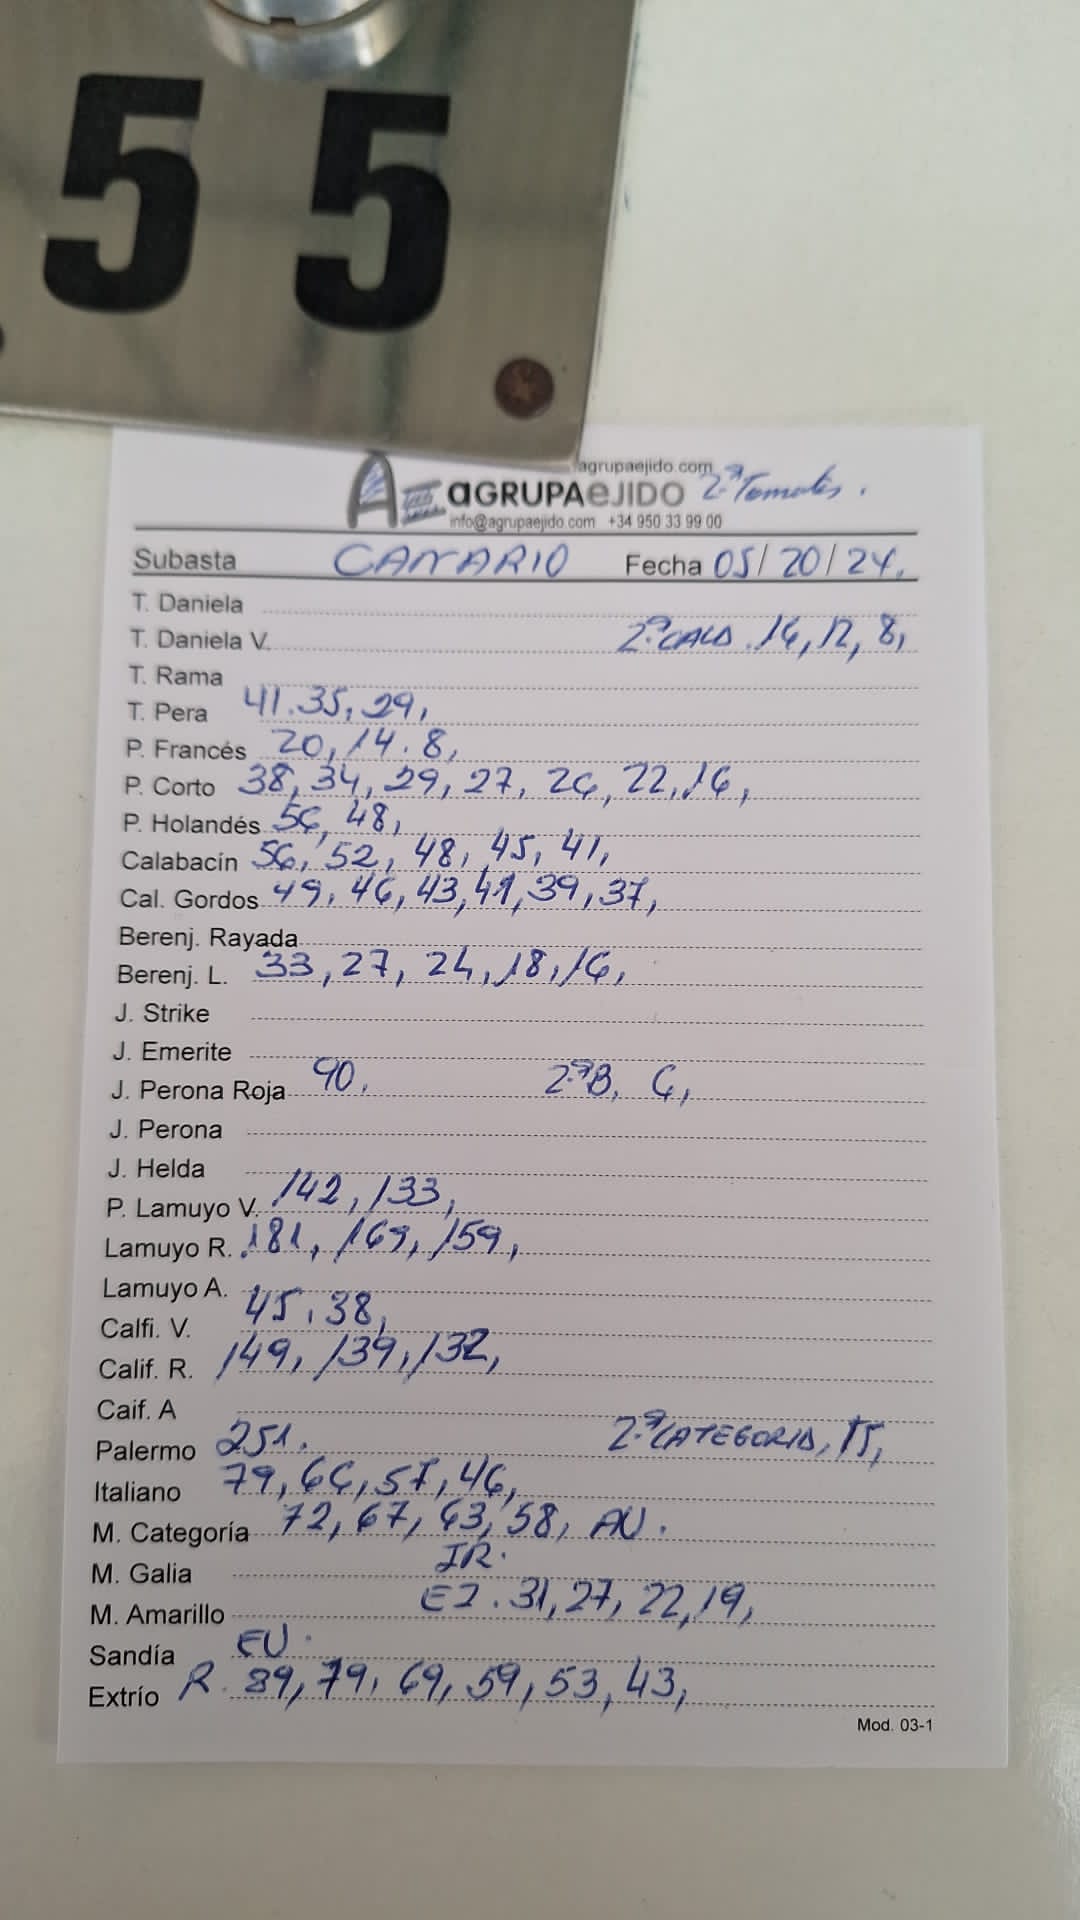 55
agrupaejido.com
aGRUPAeJIDO 2ª Tomates.
info@agrupaejido.com +34 950 33 99 00
Subasta CANARIO Fecha 05/20/24.
T. Daniela
T. Daniela V. 2ª CALD. 16, 12, 8,
T. Rama
T. Pera 41. 35, 29,
P. Francés 20, 14. 8,
P. Corto 38, 34, 29, 27, 26, 22, 16,
P. Holandés 56, 48,
Calabacín 56, 52, 48, 45, 41,
Cal. Gordos 49, 46, 43, 41, 39, 37,
Berenj. Rayada
Berenj. L. 33, 27, 24, 18, 16,
J. Strike
J. Emerite
J. Perona Roja 90, 2ªB, 6,
J. Perona
J. Helda
P. Lamuyo V. 142, 133,
Lamuyo R. 181, 169, 159,
Lamuyo A.
Calfi. V. 45, 38,
Calif. R. 149, 139, 132,
Caif. A
Palermo 251. 2ª CATEGORIA, 15,
Italiano 79, 66, 57, 46,
M. Categoría 72, 67, 63, 58, AU.
M. Galia IR.
M. Amarillo EJ. 31, 27, 22, 19,
Sandía EU.
Extrío R. 89, 79, 69, 59, 53, 43,
Mod. 03-1